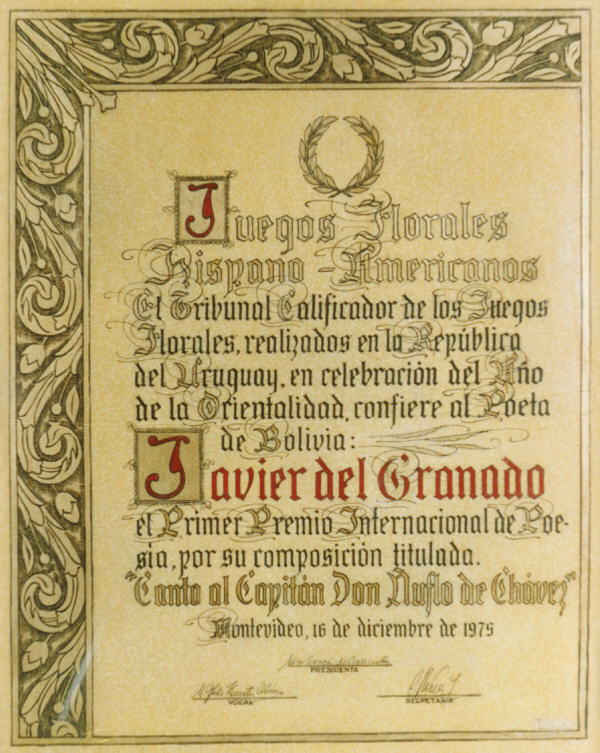 Juegos Florales
Hispano - Americanos
El Tribunal Calificador de los Juegos
Florales, realizados en la República
del Uruguay, en celebración del Año
de la Orientalidad, confiere al Poeta
de Bolivia:
Javier del Granado
el Primer Premio Internacional de Poe-
sía, por su composición titulada.
"Canto al Capitán Don Ñuflo de Chávez"
Montevideo, 16 de diciembre de 1975
PRESIDENTA
VOCAL
SECRETARIA